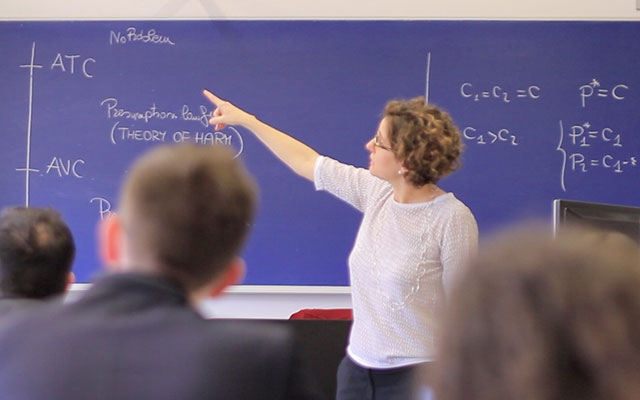 No Problem
ATC
Presumption
(THEORY OF HARM)
AVC
C₁=C₂=C
P*=C
C₁>C₂
P₁*=C₁
P₂=C₁-